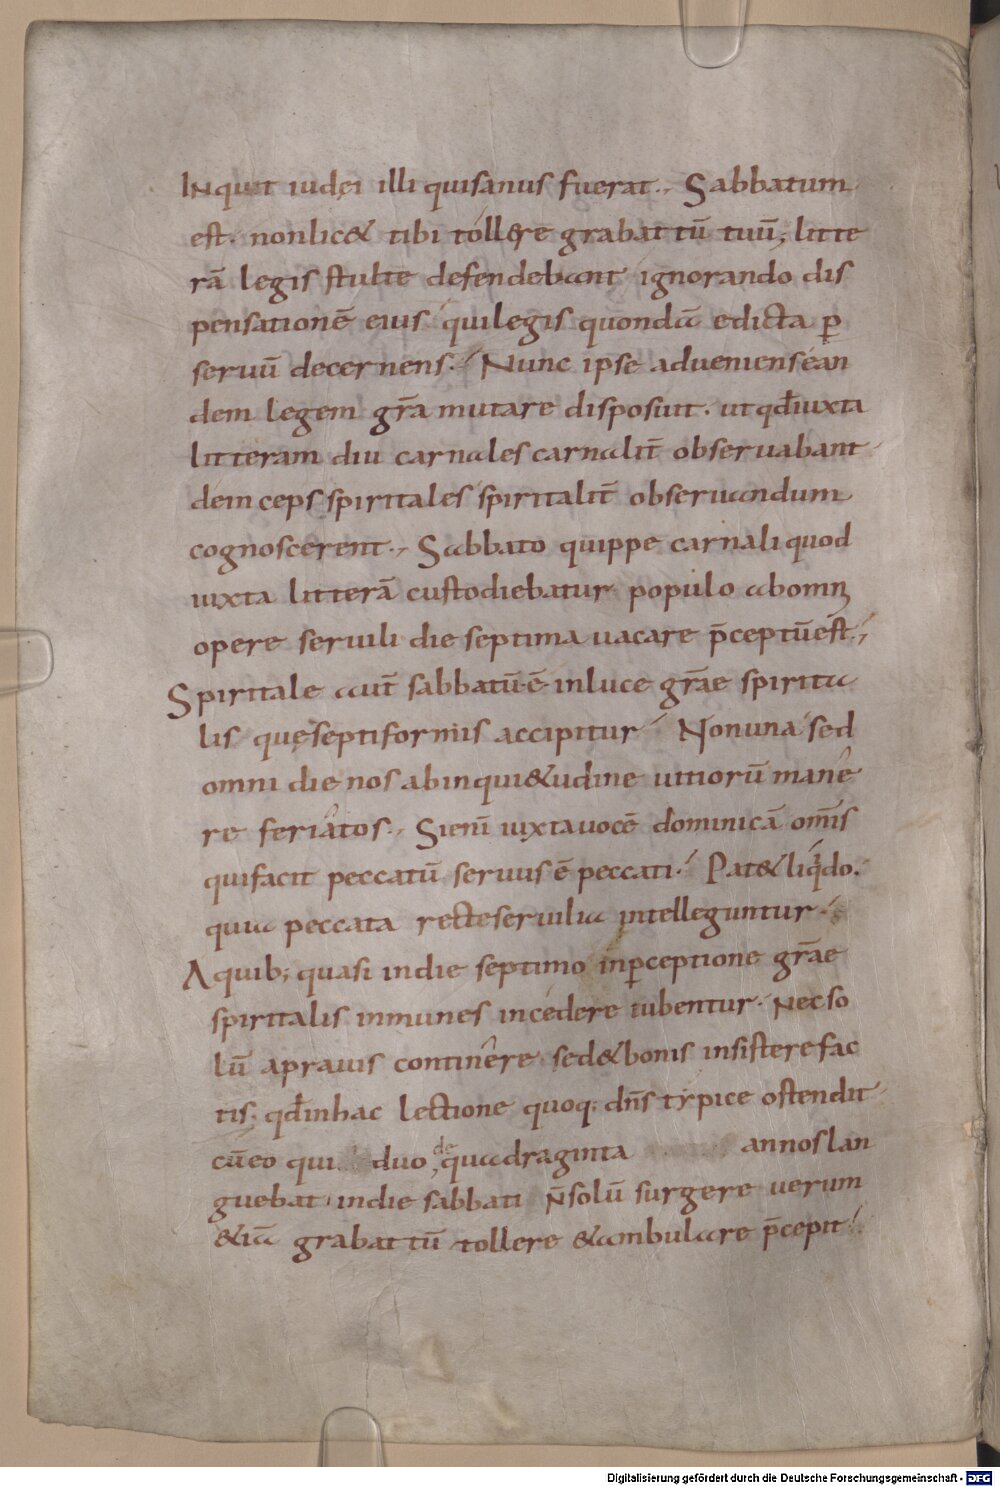 Inquit iudęi illi qui sanus fuerat., Sabbatum
est. non lic& tibi tollere grabattū tuū; litte
rā legis stulte defendebant ignorando dis
pensationē eius qui legis quondā edicta ꝑ
seruū decernens. Nunc ipse adueniens ean
dem legem gr̄a mutare disposuit. ut qđ iuxta
litteram diu carnales carnalit̄ obseruabant
demceps spiritales spiritalit̄ obseruandum
cognoscerent., Sabbato quippe carnali quod
iuxta litterā custodiebatur populo ab omni
opere seruili die septima uacare p̄ceptū est.,
Spiritale aut̄ sabbatū ē in luce gr̄ae spirita
lis quę septiformis accipitur Non una sed
omni die nos ab inqui&udine uitiorū mane
re feriatos., Si eni iuxta uocē dominicā om̄s
qui facit peccatū seruus ē peccati. Pat& liqdo.
quia peccata recte seruilia intelleguntur.
A quib; quasi in die septimo in ꝑceptione gr̄ae
spiritalis inmunes incedere iubentur. Nec so
lū a prauis continere sed & bonis insistere fac
tis; qđ in hac lectione quoq; dn̄s typice ostendit
cū eo qui duo de quadraginta annos lan
guebat in die sabbati n̄ solū surgere uerum
&iā grabattū tollere & ambulare p̄cepit.
Digitalisierung gefördert durch die Deutsche Forschungsgemeinschaft - DFG